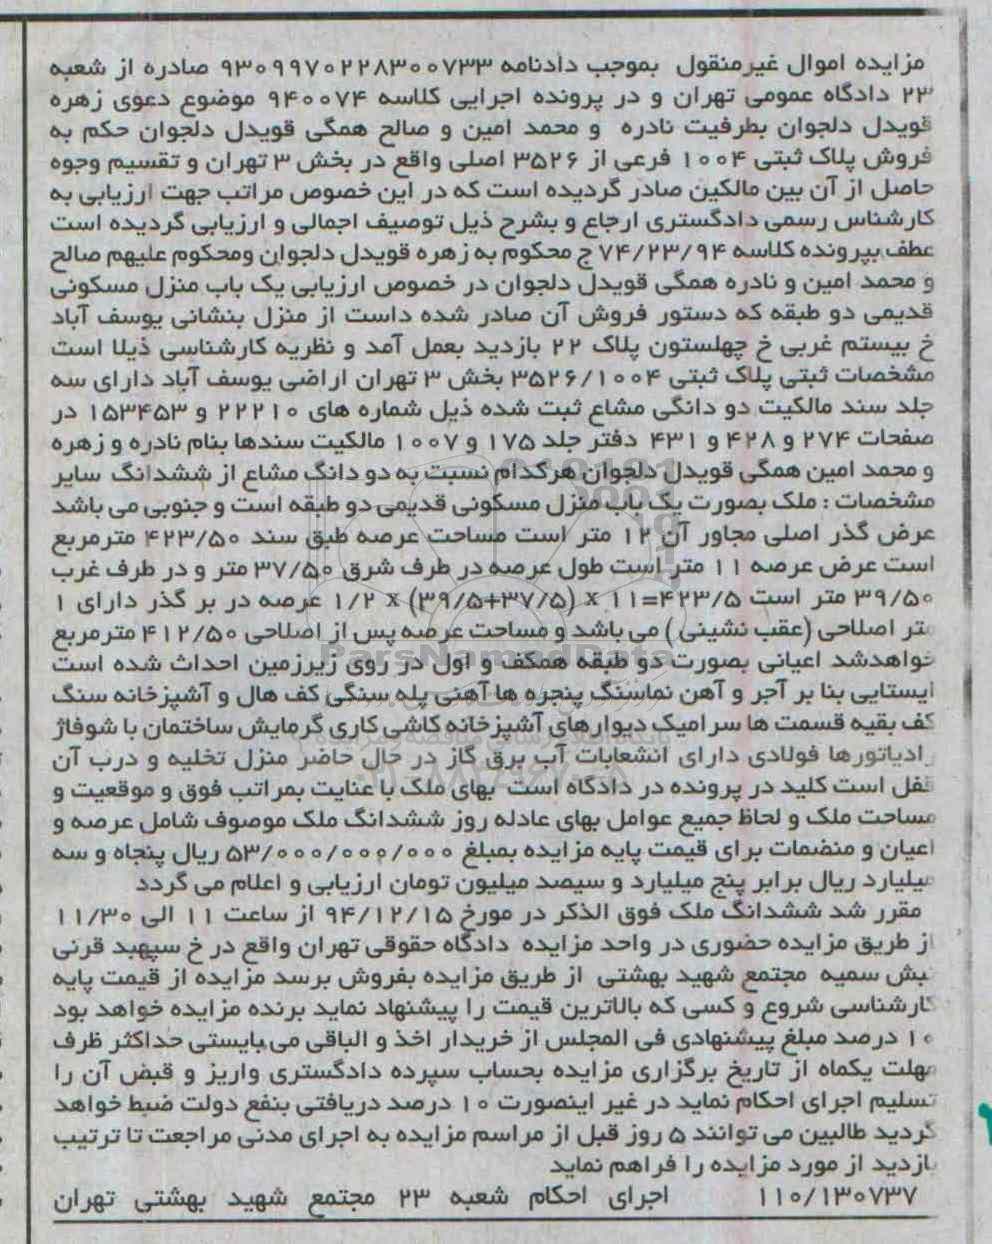 مزایده اموال غیرمنقول بموجب دادنامه ۹۳۰۹۹۷۰۲۲۸۳۰۰۷۳۳ صادره از شعبه
۲۳ دادگاه عمومی تهران و در پرونده اجرایی کلاسه ۹۴۰۰۷۴ موضوع دعوی زهره
قویدل دلجوان بطرفیت نادره و محمد امین و صالح همگی قویدل دلجوان حکم به
فروش پلاک ثبتی ۱۰۰۴ فرعی از ۳۵۲۶ اصلی واقع در بخش ۳ تهران و تقسیم وجوه
حاصل از آن بین مالکین صادر گردیده است که در این خصوص مراتب جهت ارزیابی به
کارشناس رسمی دادگستری ارجاع و بشرح ذیل توصیف اجمالی و ارزیابی گردیده است
عطف بپرونده کلاسه ۷۴/۲۳/۹۴ ج محکوم به زهره قویدل دلجوان ومحکوم علیهم صالح
و محمد امین و نادره همگی قویدل دلجوان در خصوص ارزیابی یک باب منزل مسکونی
قدیمی دو طبقه که دستور فروش آن صادر شده داست از منزل بنشانی یوسف آباد
خ بیستم غربی خ چهلستون پلاک ۲۲ بازدید بعمل آمد و نظریه کارشناسی ذیلا است
مشخصات ثبتی پلاک ثبتی ۳۵۲۶/۱۰۰۴ بخش ۳ تهران اراضی یوسف آباد دارای سه
جلد سند مالکیت دو دانگی مشاع ثبت شده ذیل شماره های ۲۲۲۱۰ و ۱۵۳۴۵۳ در
صفحات ۲۷۴ و ۴۲۸ و ۴۳۱ دفتر جلد ۱۷۵ و ۱۰۰۷ مالکیت سندها بنام نادره و زهره
و محمد امین همگی قویدل دلجوان هرکدام نسبت به دو دانگ مشاع از ششدانگ سایر
مشخصات : ملک بصورت یک باب منزل مسکونی قدیمی دو طبقه است و جنوبی می باشد
عرض گذر اصلی مجاور آن ۱۲ متر است مساحت عرصه طبق سند ۴۲۳/۵۰ مترمربع
است عرض عرصه ۱۱ متر است طول عرصه در طرف شرق ۳۷/۵۰ متر و در طرف غرب
۳۹/۵۰ متر است ۴۲۳/۵=۱۱ x (۳۹/۵+۳۷/۵) x ۱/۲ عرصه در بر گذر دارای ۱
متر اصلاحی (عقب نشینی ) می باشد و مساحت عرصه پس از اصلاحی ۴۱۲/۵۰ مترمربع
خواهدشد اعیانی بصورت دو طبقه همکف و اول در روی زیرزمین احداث شده است
ایستایی بنا بر آجر و آهن نماسنگ پنجره ها آهنی پله سنگی کف هال و آشپزخانه سنگ
کف بقیه قسمت ها سرامیک دیوارهای آشپزخانه کاشی کاری گرمایش ساختمان با شوفاژ
رادیاتورها فولادی دارای انشعابات آب برق گاز در حال حاضر منزل تخلیه و درب آن
قفل است کلید در پرونده در دادگاه است بهای ملک با عنایت بمراتب فوق و موقعیت و
مساحت ملک و لحاظ جمیع عوامل بهای عادله روز ششدانگ ملک موصوف شامل عرصه و
اعیان و منضمات برای قیمت پایه مزایده بمبلغ ۵۳/۰۰۰/۰۰۰/۰۰۰ ریال پنجاه و سه
میلیارد ریال برابر پنج میلیارد و سیصد میلیون تومان ارزیابی و اعلام می گردد
مقرر شد ششدانگ ملک فوق الذکر در مورخ ۹۴/۱۲/۱۵ از ساعت ۱۱ الی ۱۱/۳۰
از طریق مزایده حضوری در واحد مزایده دادگاه حقوقی تهران واقع در خ سپهبد قرنی
نبش سمیه مجتمع شهید بهشتی از طریق مزایده بفروش برسد مزایده از قیمت پایه
کارشناسی شروع و کسی که بالاترین قیمت را پیشنهاد نماید برنده مزایده خواهد بود
۱۰ درصد مبلغ پیشنهادی فی المجلس از خریدار اخذ و الباقی می‌بایستی حداکثر ظرف
مهلت یکماه از تاریخ برگزاری مزایده بحساب سپرده دادگستری واریز و قبض آن را
تسلیم اجرای احکام نماید در غیر اینصورت ۱۰ درصد دریافتی بنفع دولت ضبط خواهد
گردید طالبین می توانند ۵ روز قبل از مراسم مزایده به اجرای مدنی مراجعت تا ترتیب
بازدید از مورد مزایده را فراهم نماید
۱۱۰/۱۳۰۷۳۷ اجرای احکام شعبه ۲۳ مجتمع شهید بهشتی تهران
ParsNamadData